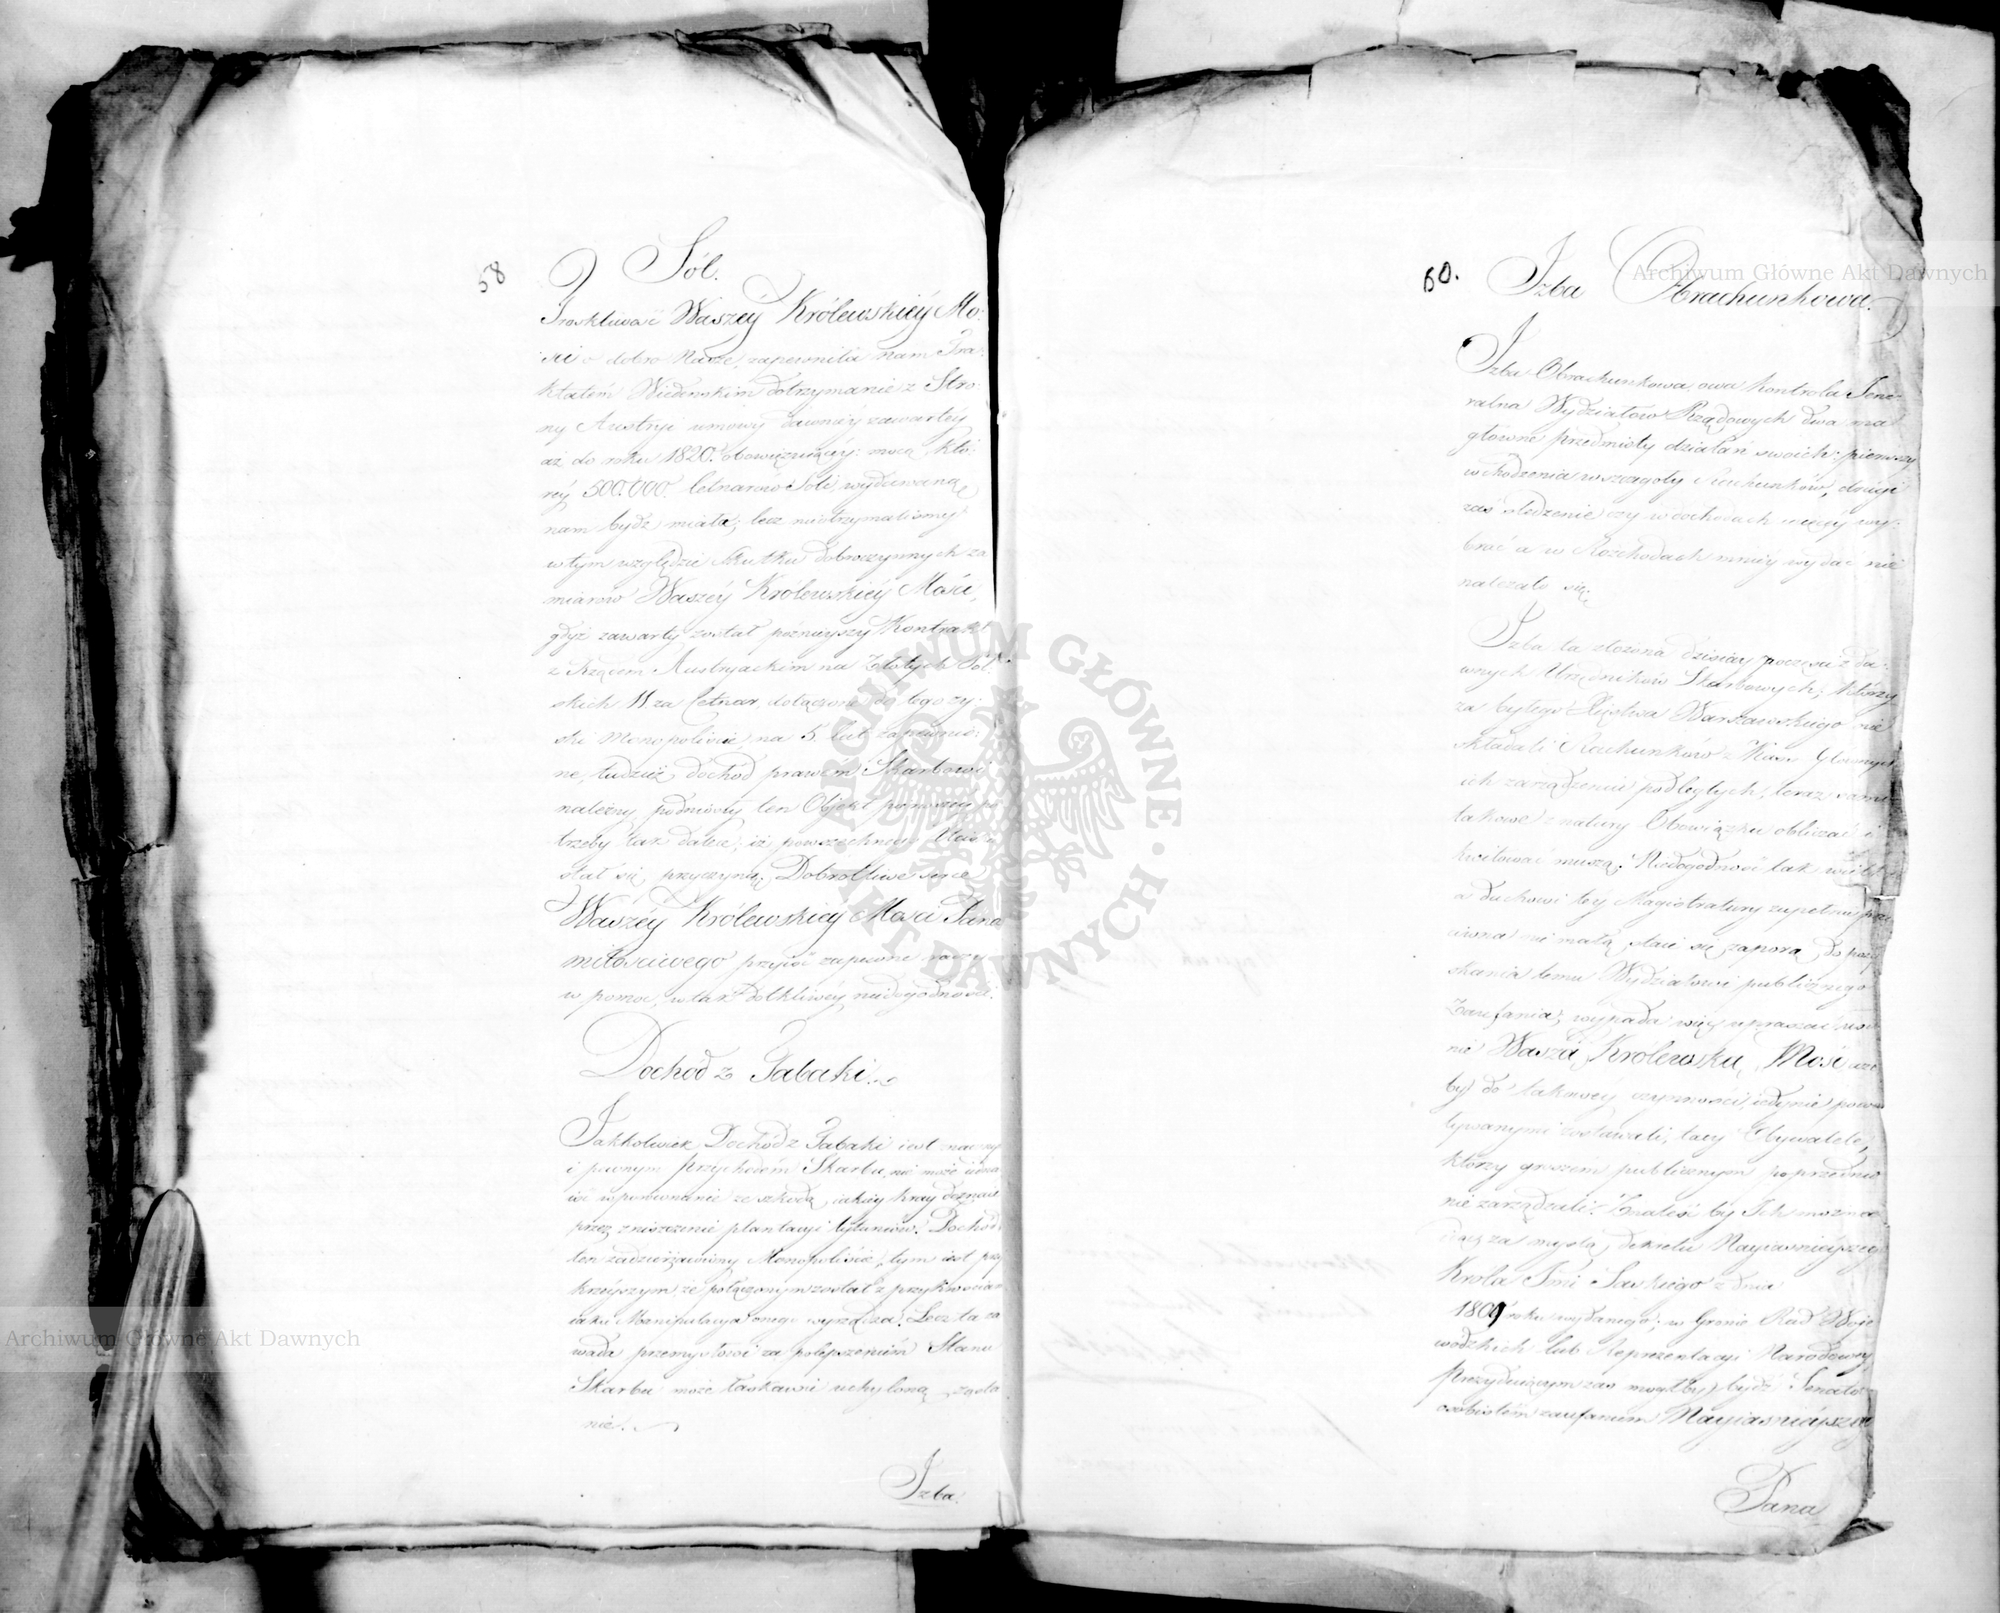 58
Sól.
Troskliwość Waszéy Królewskiéy Mo-
ści o dobro Nasze, zapewniła nam Tra-
ktatem Wiedenskim dotrzymanie z Stro-
ny Austryi umowy dawniéy zawartéy
aż do roku 1820. obowięzuiącéy: mocą któ-
réy 500.000. Cetnarów Soli, wydawaną
nam bydź miało; lecz nieotrzymaliśmy
w tym względzie skutku dobroczynnych za
miarów Waszéy Królewskiéy Mości,
gdyż zawarty został późnieyszy Kontrakt
z Rządem Austryackim na Złotych Pol-
skich 11. za Cetnar, dołączone do tego zy-
ski Monopoliście, na 5. lat zapewnio-
ne, tudzież dochód prawem Skarbowi
należny, podniosły ten Objekt pierwszéy po
trzeby tak dalece, iż powszechnego
stał się przyczyną. Dobrotliwe serce
Waszéy Królewskiéy Mości Pana
miłościwego przyiść zapewne raczy
w pomoc, w tak dotkliwéy niedogodności.
Dochód z Tabaki.
Jakkolwiek Dochód z Tabaki iest znaczny
i pewnym przychodem Skarbu, nie może iedna
iść w porównanie ze szkodą, iakiéy kray doznaie
przez zniszczenie plantacyi tytuniów. Dochód
ten zadzierżawiony Monopoliście, tym iest przy
krzéyszym, że połączonym został z przykrościami
iakie Manipulacya onego wyrządza. Lecz ta za
wada przemysłowi za polepszeniem Stanu
Skarbu może łaskawie uchyloną zosta
nie.
Izba.
Archiwum Główne Akt Dawnych
60.
Izba Obrachunkowa.
Izba Obrachunkowa, owa Kontrola Jene-
ralna Wydziałów Rządowych dwa ma
główne przedmioty działań swoich: pierwszy
wchodzenia w szczegóły Rachunków, drugi
zaś śledzenie czy w dochodach więcéy wy-
brać a w Rozchodach mniéy wydać nie
należało się.
Izba ta złożona dzisiay poczęści z da-
wnych Urzędników Skarbowych, którzy
za byłego Xięstwa Warszawskiego nie
składali Rachunków z Kass Głównych
ich zarządzeniu podległych, teraz sami
takowe z natury Obowiązku obliczać i
kwitować muszą. Niedogodność tak wielka
a duchowi téy Magistratury zupełnie prze
ciwna nie małą staie się zaporą do pozy
skania temu Wydziałowi publicznego
Zaufania; wypada więc upraszać
nie Waszą Królewską Mość aże
by do takowéy czynności iedynie powo
ływanymi zostawali, tacy Obywatele,
którzy groszem publicznym poprzednio
nie zarządzali. Znaleść by Ich można
idąc za myślą dekretu Nayiaśniéyszego
Króla Jmci Saskiego z dnia
1809 roku wydanego; w Gronie Rad Woje
wódzkich lub Reprezentacyi Narodowéy
Prezyduiącym zaś mógłby bydź Senator
osobistém zaufaniem Nayiaśniéyszego
Pana
Archiwum Główne Akt Dawnych
ARCHIWUM GŁÓWNE · AKT DAWNYCH ·